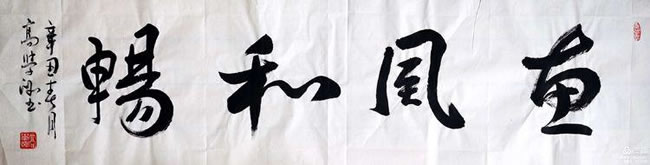 惠風和暢
辛丑春月
高學